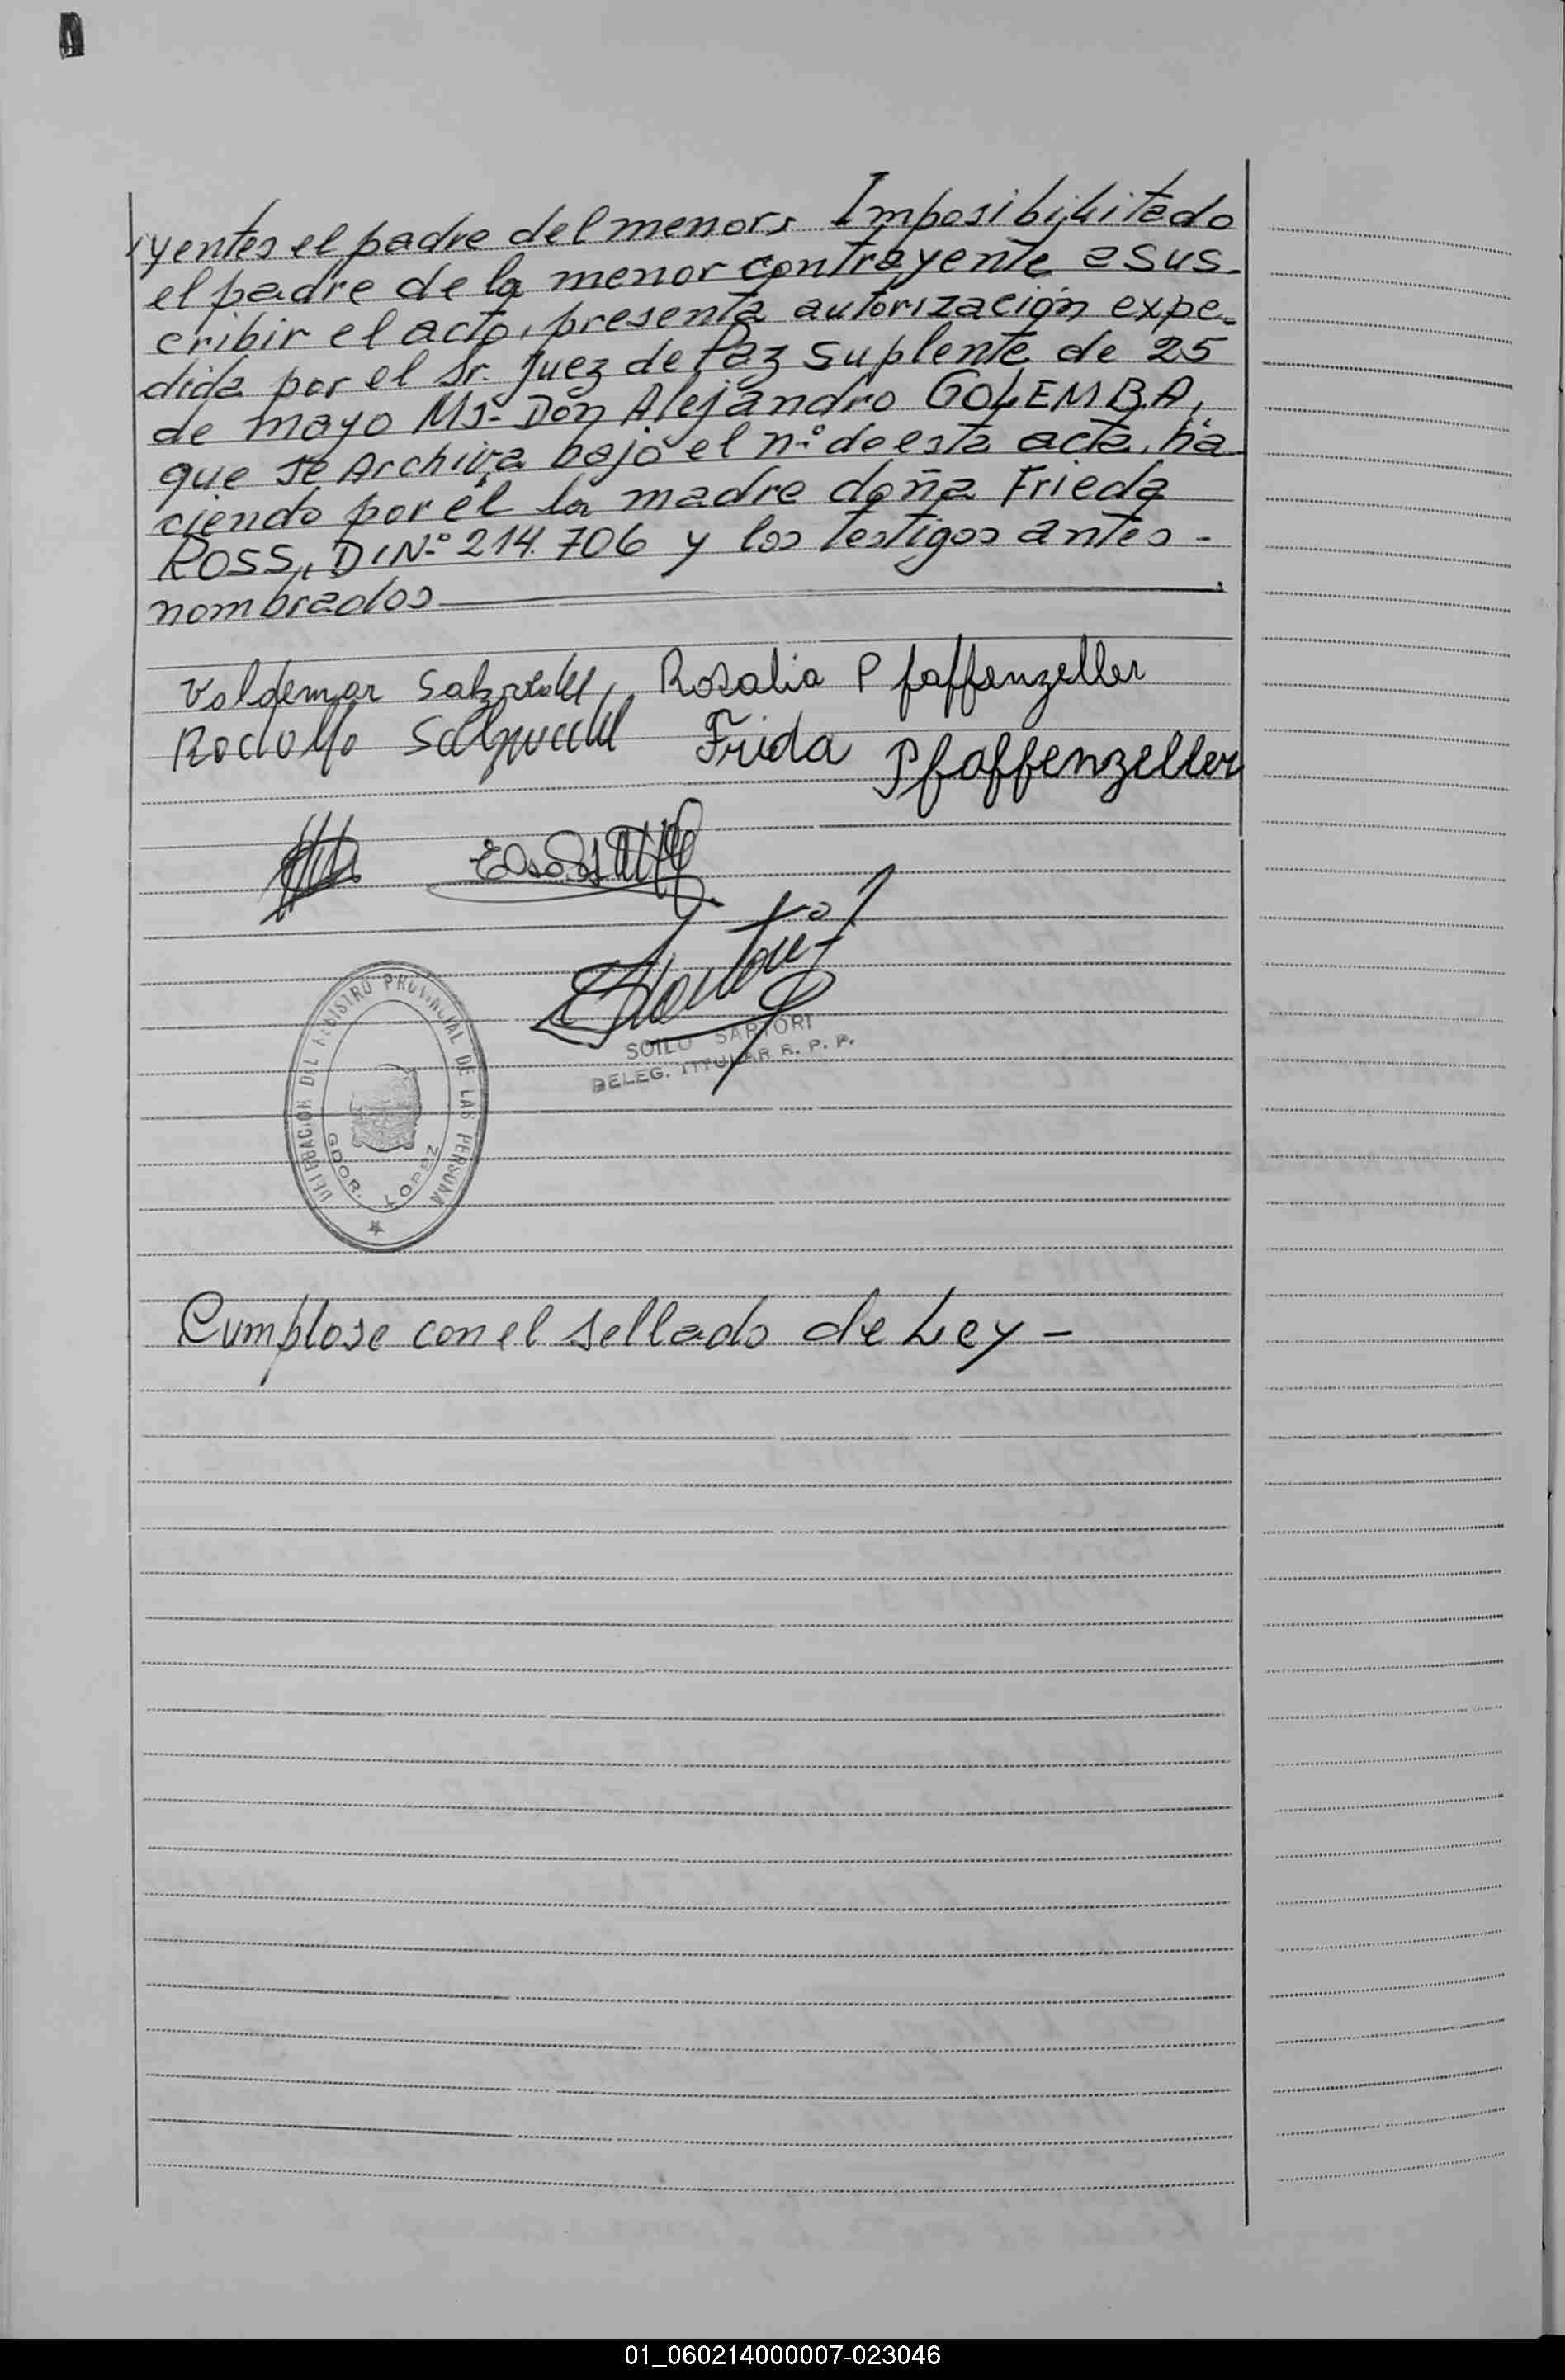 yentes el padre del menor, Imposibilitado
el padre de la menor contrayente a sus-
cribir el acto, presenta autorización expe-
dida por el Sr. Juez de Paz suplente de 25
de mayo Ms- Don Alejandro GOLEMBA,
que se Archiva bajo el n.º de esta acta, ha-
ciendo por él la madre doña Frieda
ROSS, DIN.º 214.706 y los testigos antes-
nombrados
Valdemar Rosalia Pfaffenzeller
Rodolfo Frida Pfaffenzeller
SOILO SARTORI
DELEG. TITULAR R. P. P.
DEL REGISTRO PROVINCIAL DE LAS PERSONA
GDOR. LOPEZ
Cumplose con el sellado de Ley -
01_060214000007-023046